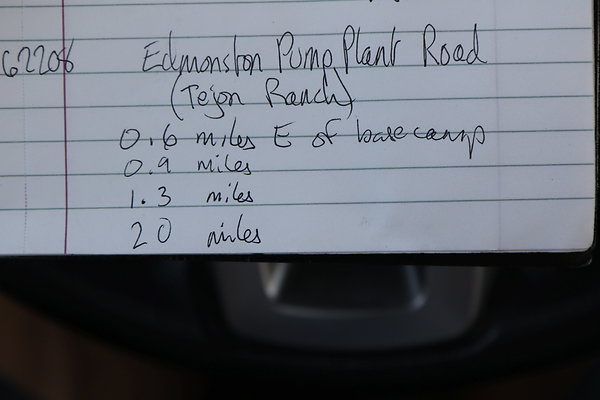 62206 Edmonston Pump Plant Road
(Tejon Ranch)
0.6 miles E of basecamp
0.9 miles
1.3 miles
20 miles